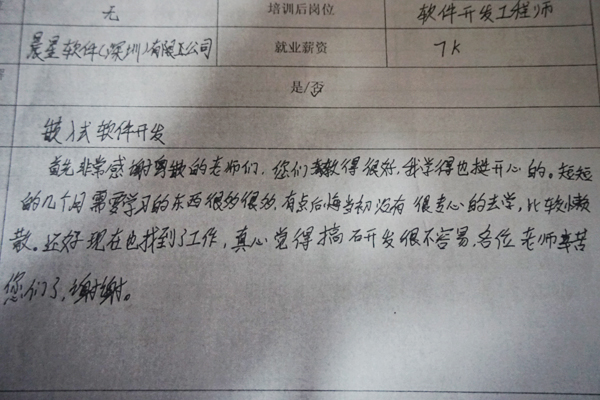 无 培训后岗位 软件开发工程师
晨星软件(深圳)有限公司 就业薪资 7K
是/否
嵌入式软件开发
首先非常感谢的老师们,您们教得很好,我学得也挺开心的。短短
的几个月需要学习的东西很多很多,有点后悔当初没有很专心的去学,比较懒
散。还好现在也找到了工作,真心觉得搞开发很不容易,各位老师辛苦
您们了,谢谢。